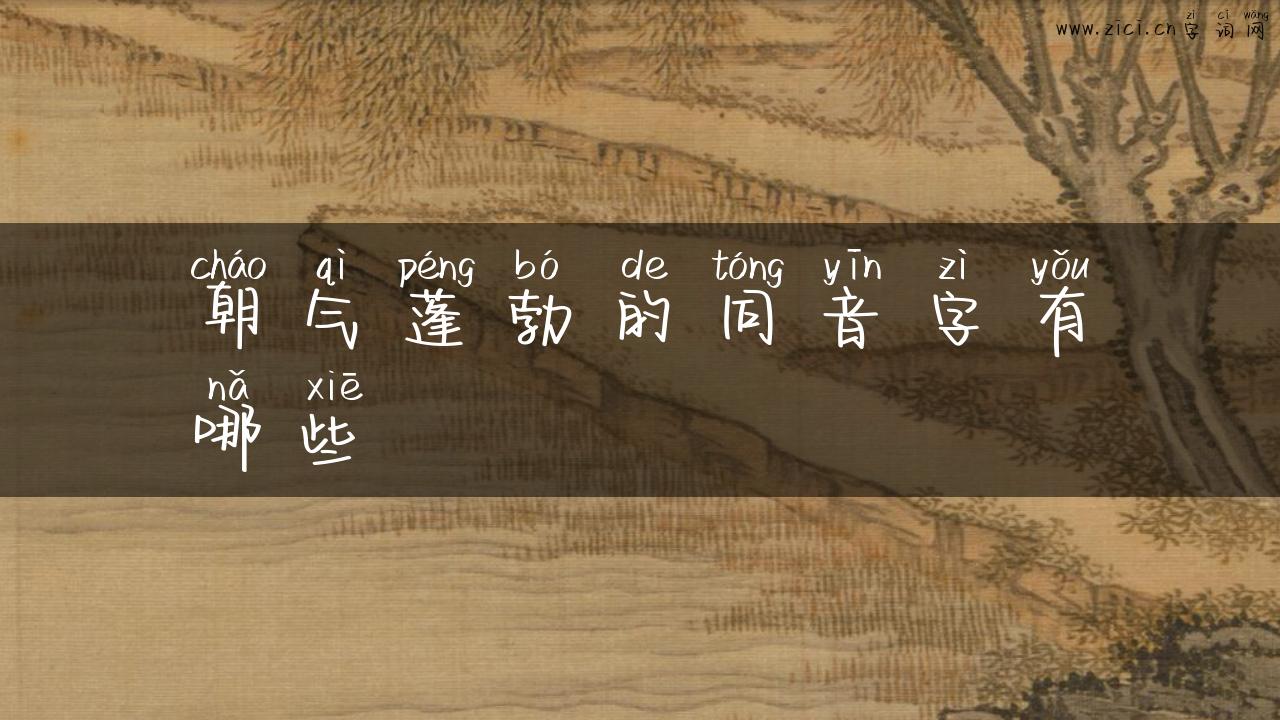 zì cí wǎng
www.zici.cn字词网
cháo qì péng bó de tóng yīn zì yǒu
朝气蓬勃的同音字有
nǎ xiē
哪些